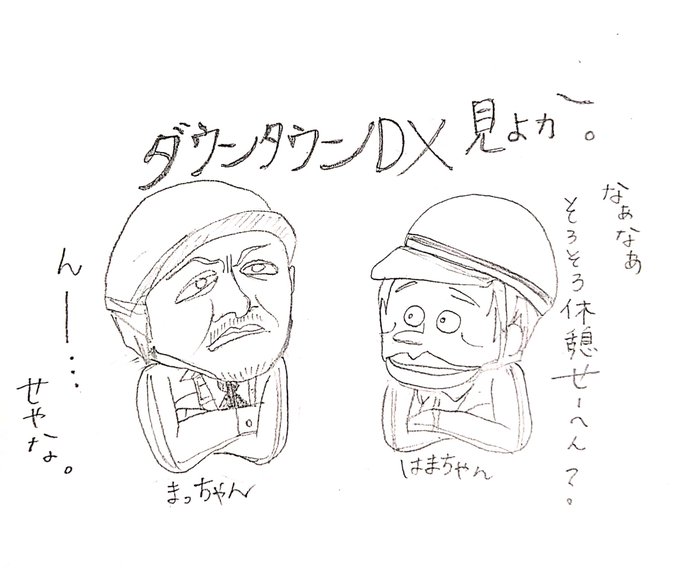 ダウンタウンDX見よカ〜。
なぁなあ
そろそろ休憩せーへん?。
んー…
せやな。
まっちゃん
はまちゃん